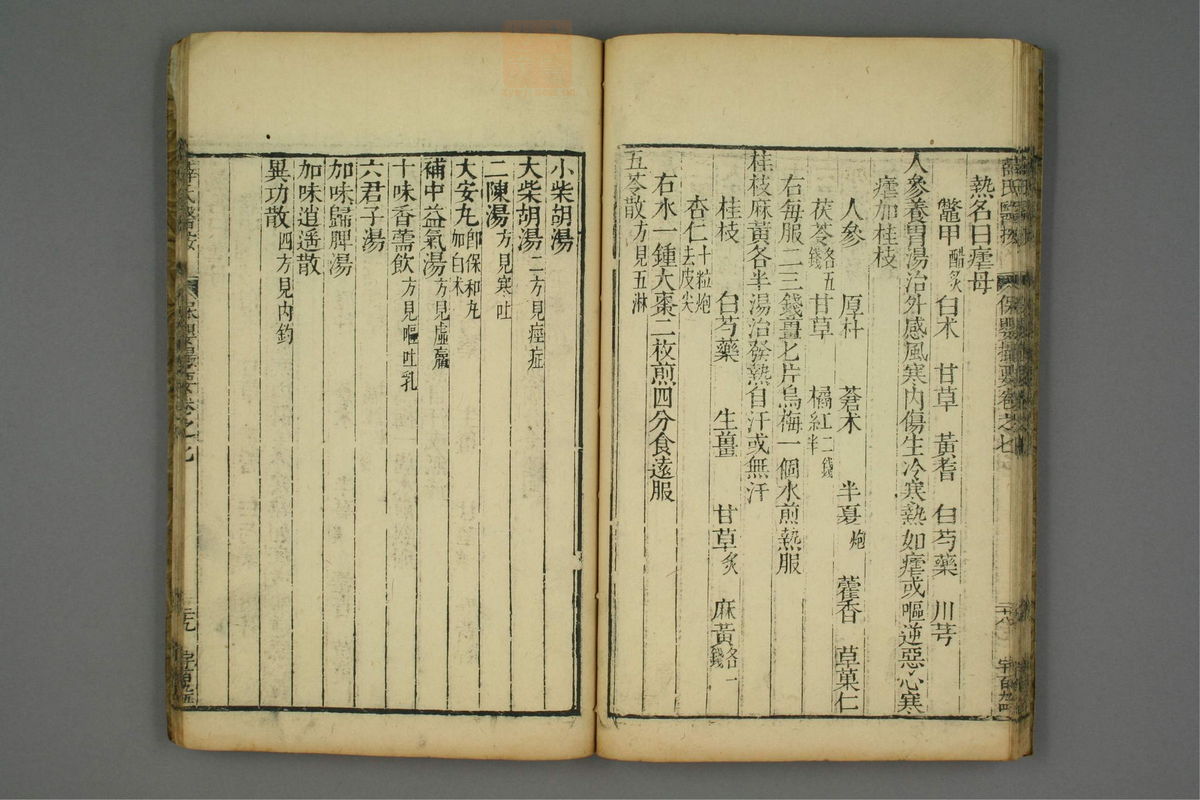 薛氏醫按 保嬰撮要卷之七
熱名曰瘧母
鱉甲醋炙 白术 甘草 黃耆 白芍藥 川芎
人參養胃湯治外感風寒內傷生冷寒熱如瘧或嘔逆惡心寒
瘧加桂枝
人參 厚朴 蒼术 半夏炮 藿香 草菓仁
茯苓各五錢 甘草 橘紅二錢半
右每服二三錢薑七片烏梅一個水煎熱服
桂枝麻黃各半湯治發熱自汗或無汗
桂枝 白芍藥 生薑 甘草炙 麻黃各一錢
杏仁十粒炮去皮尖
右水一鍾大棗二枚煎四分食遠服
五苓散方見五淋
小柴胡湯
大柴胡湯二方見痙症
二陳湯方見寒吐
大安丸即保和丸加白术
補中益氣湯方見虛羸
十味香薷飲方見嘔吐乳
六君子湯
加味歸脾湯
加味逍遥散
異功散四方見內釣
薛氏醫按 保嬰撮要卷之七